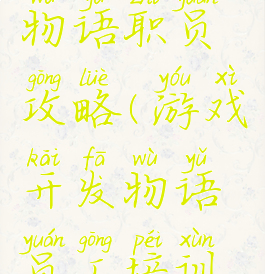 物语职员
gōng lüè yóu xì
攻略(游戏
kāi fā wù yǔ
开发物语
yuán gōng péi xùn
员工培训